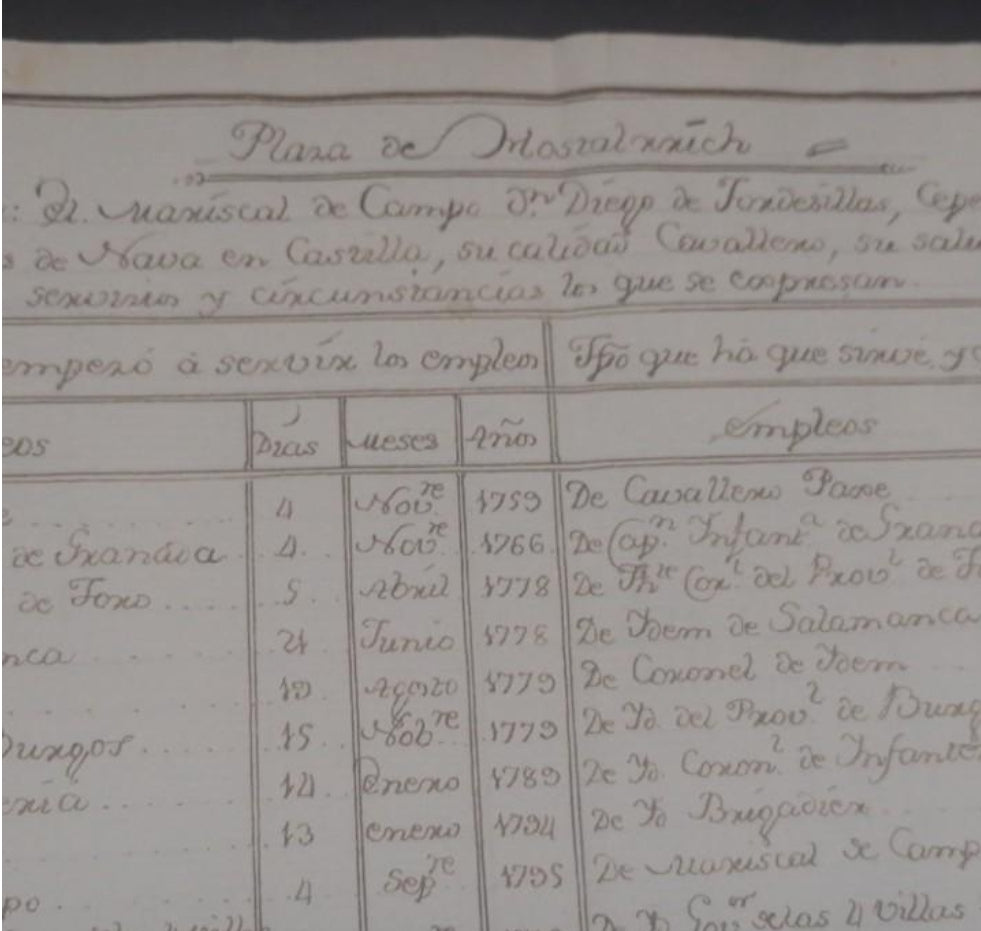 Plaza de Mostalrrich
El Mariscal de Campo Dn. Diego de Tordesillas, Cepe
s de Nava en Castilla, su calidad Cavallero, su salu
servicios y circunstancias los que se expressan.
empezó á servir los empleos Tpō que há que sirve, y
eos Dias Meses Años empleos
4 Nov.re 1759 De Cavallero Page
de Granada 4. Nov.re 1766 De Cap.n Infant.a de Grana
de Toro 5. Abril 1778 De Th.te Cor.l del Prov.l de T
nca 21 Junio 1778 De Idem de Salamanca
10 Agosto 1779 De Coronel de Idem
Burgos 15 Nob.re 1779 De Yd. del Prov.l de Burg
eria 14. Enero 1789 De Yd. Coron.l de Infante
13 enero 1794 De Yd. Brigadier
po 4 Sep.re 1795 De Mariscal de Camp
Gov.or de las 4 villas